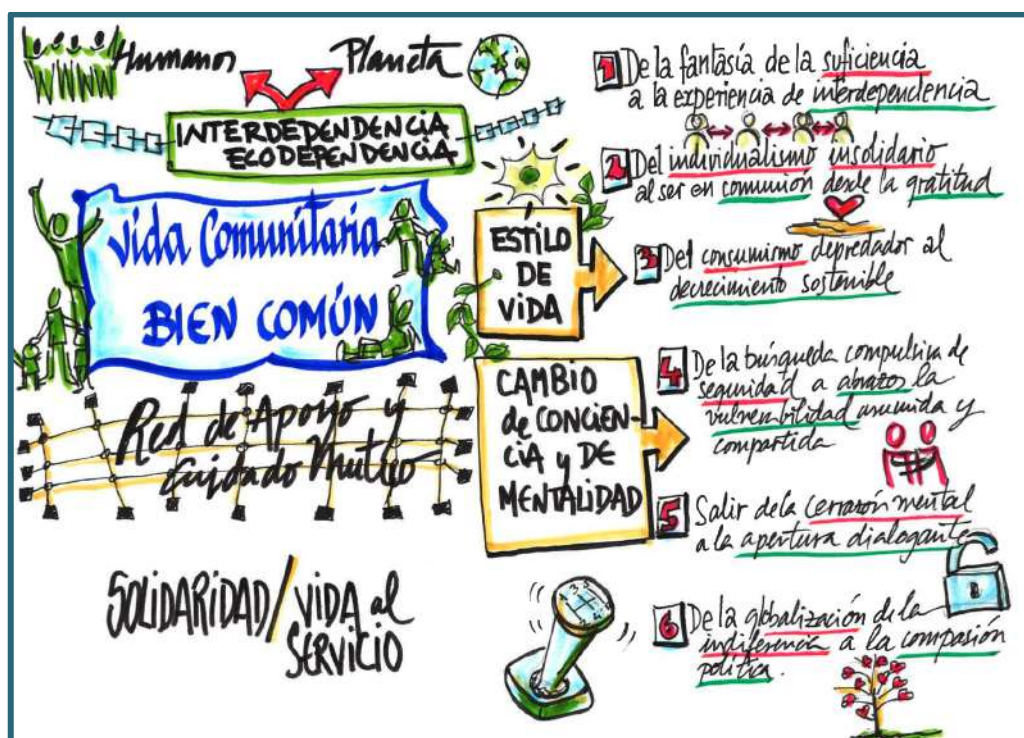 Humanos
Planeta
INTERDEPENDENCIA
ECODEPENDENCIA
Vida Comunitaria
BIEN COMÚN
Red de Apoyo y
Cuidado Mutuo
SOLIDARIDAD / VIDA al
SERVICIO
ESTILO
DE
VIDA
CAMBIO
de CONCIEN-
CIA y DE
MENTALIDAD
1 De la fantasía de la suficiencia
a la experiencia de interdependencia
2 Del individualismo insolidario
al ser en comunión desde la gratitud
3 Del consumismo depredador al
decrecimiento sostenible
4 De la búsqueda compulsiva de
seguridad a abrazos la
vulnerabilidad asumida y
compartida
5 Salir de la cerrazón mental
a la apertura dialogante
6 De la globalización de la
indiferencia a la compasión
política.